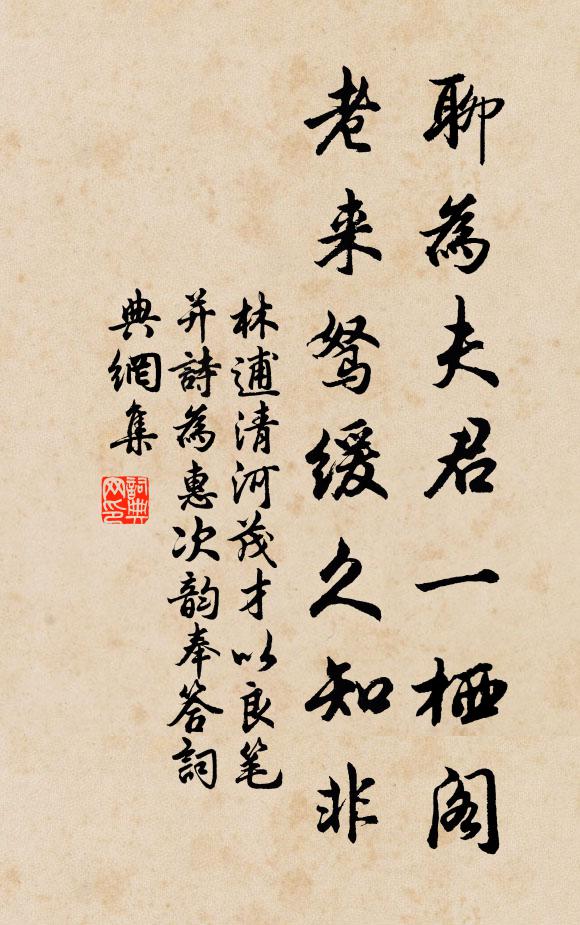 聊為夫君一栖閣
老来駑緩久知非
林逋清河茂才以良笔
并詩為惠次韵奉答詞
典網集
詞典网印